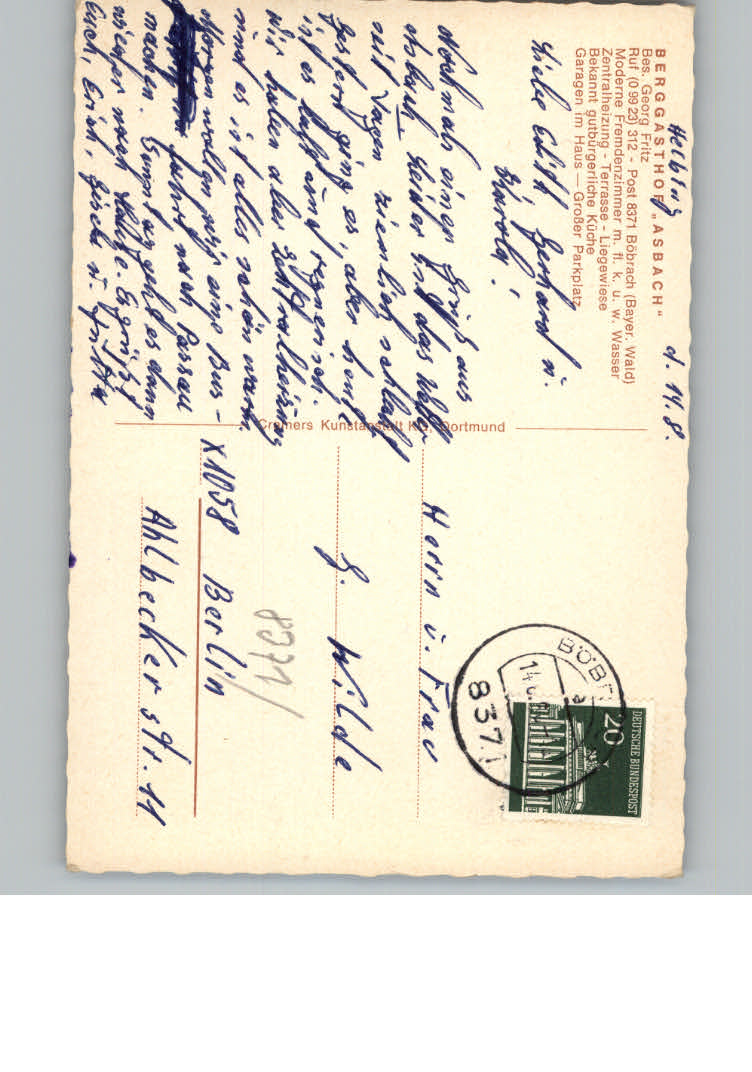 Helbing d. 14.8.
BERGGASTHOF „ASBACH“
Bes. Georg Fritz
Ruf (0 99 23) 312 - Post 8371 Böbrach (Bayer. Wald)
Moderne Fremdenzimmer m. fl. k. u. w. Wasser
Zentralheizung - Terrasse - Liegewiese
Bekannt gutbürgerliche Küche
Garagen im Haus — Großer Parkplatz
Liebe Edith, Gerhard u.
Harold!
Nochmals einen Gruß aus
Asbach. Leider ist das Wetter
seit Tagen ziemlich schlecht
gestern ging es, aber heute
ist es
Wir haben aber Zentralheizung
und es ist alles schön warm.
Morgen wollen wir eine Bus-
fahrt nach Passau
machen. Sonntag geht es dann
wieder nach Hause. Es grüßt
Euch, Erich, u. Jutta
Cramers Kunstanstalt KG, Dortmund
Herrn u. Frau
G. Wilde
X1058 Berlin
Ahlbecker Str. 11
8371/
DEUTSCHE BUNDESPOST
20
BÖBR
a
14.8.
8371